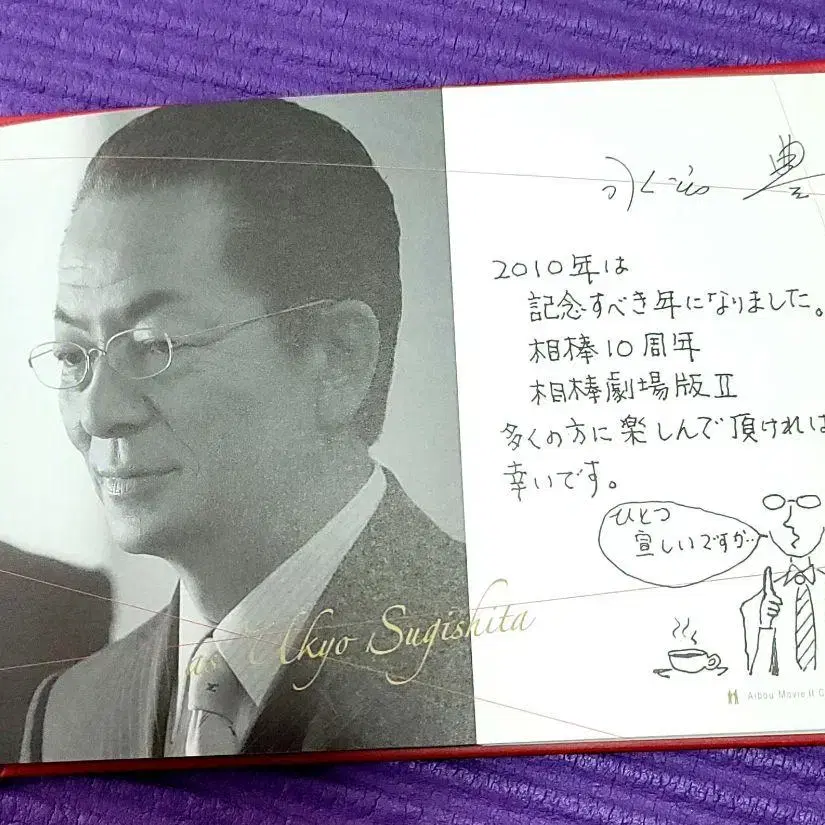 as Ukyo Sugishita
水谷 豊
2010年は
記念すべき年になりました。
相棒10周年
相棒劇場版Ⅱ
多くの方に楽しんで頂ければ
幸いです。
ひとつ
宣しいですか…
Aibou Movie II